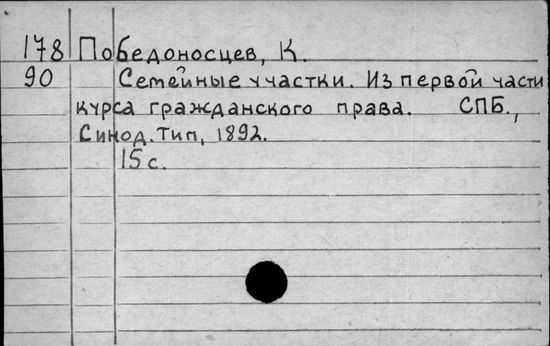 178 Победоносцев, К.
90 Семейные участки. Из первой части
курса гражданского права. СПБ.,
Синод. Тип, 1892.
15 с.